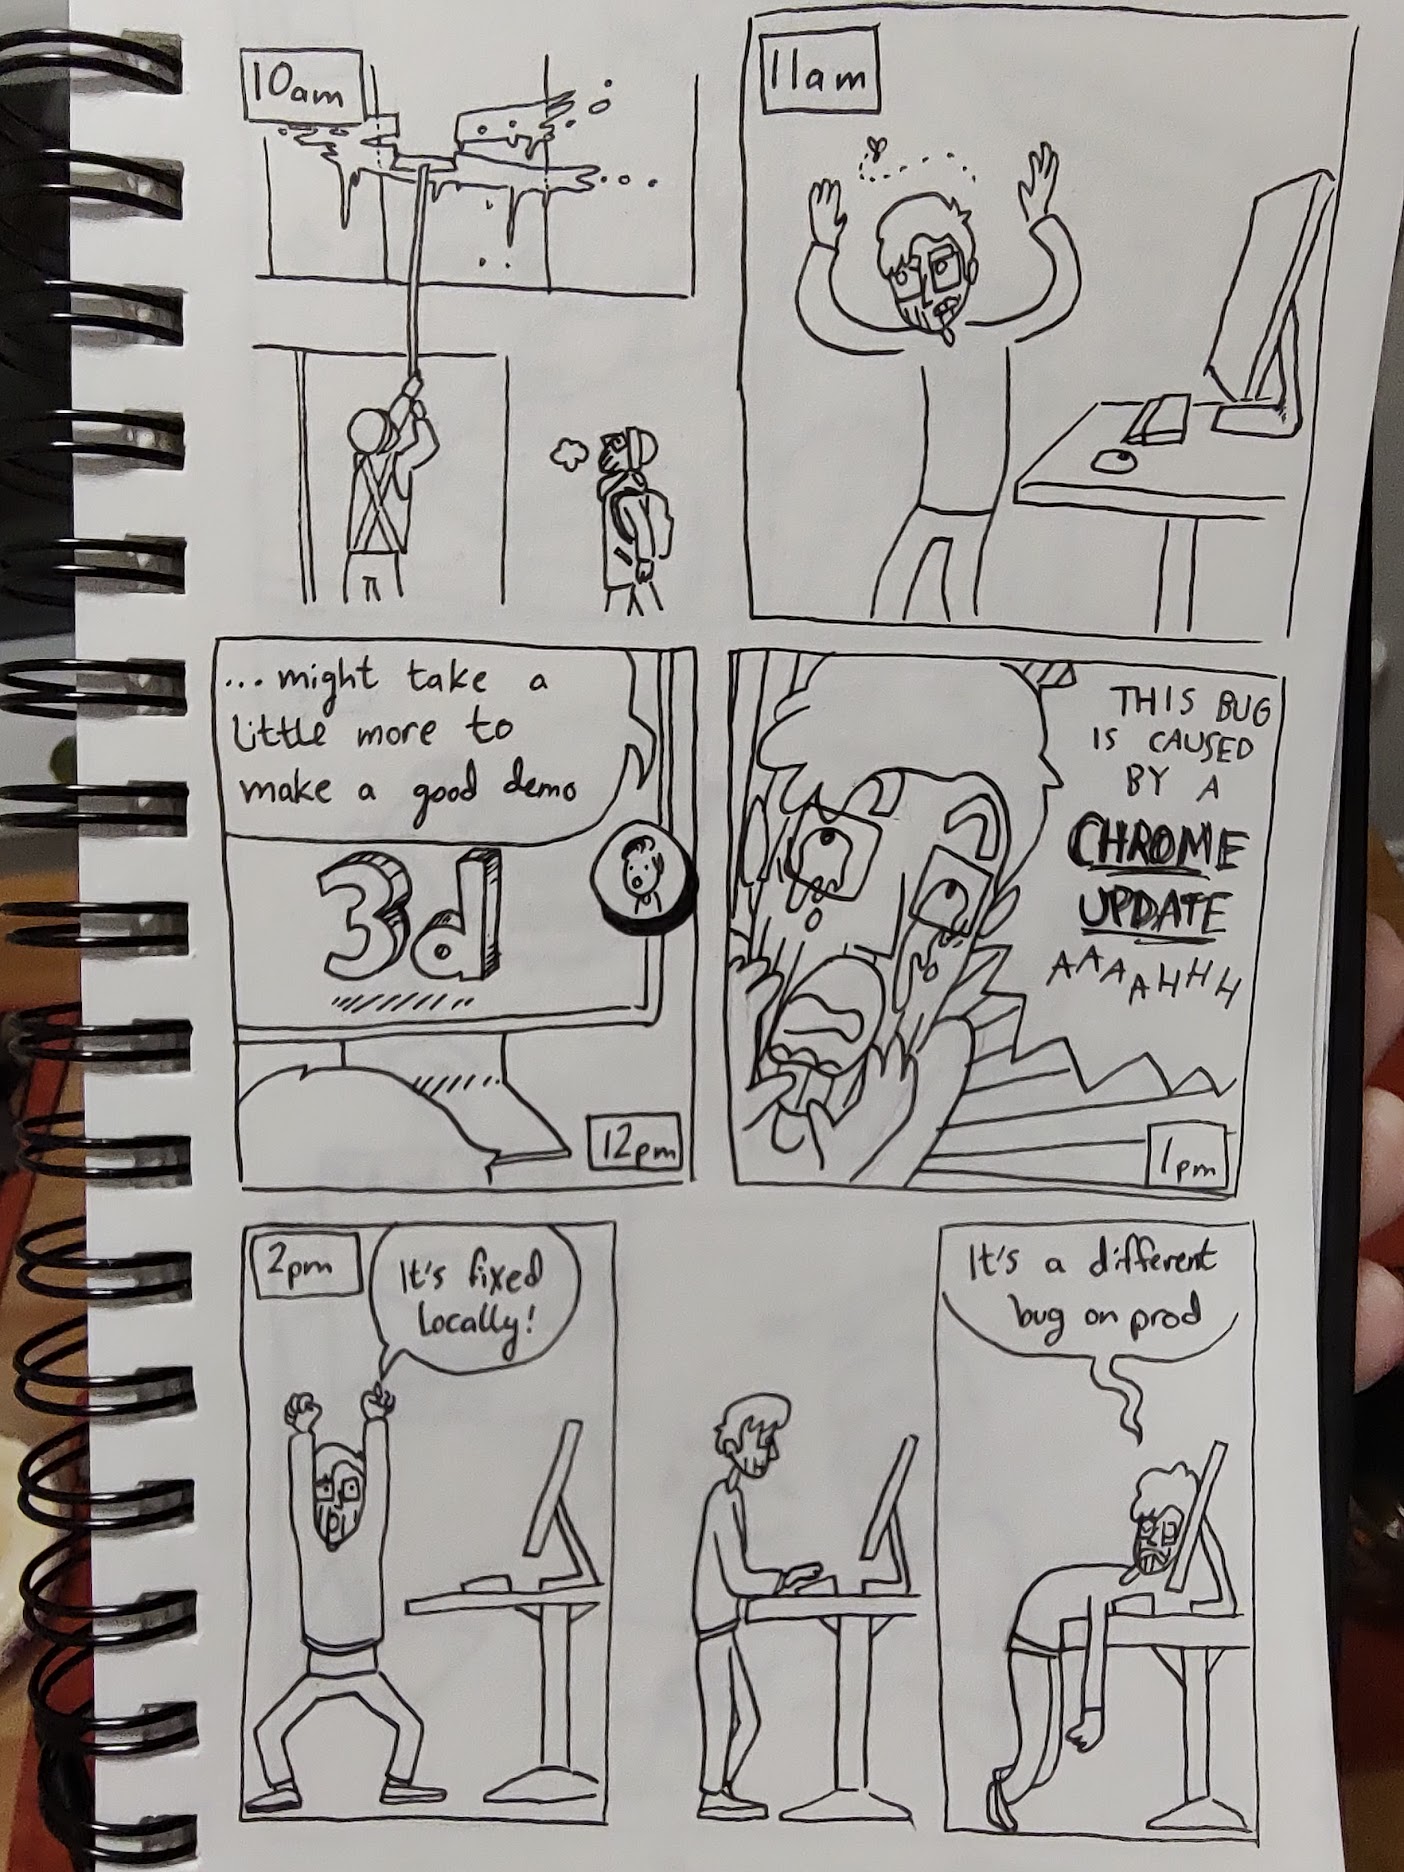 10am
11am
...might take a
little more to
make a good demo
3d
12pm
THIS BUG
IS CAUSED
BY A
CHROME
UPDATE
AAAAHHH
1pm
2pm
It's fixed
locally!
It's a different
bug on prod